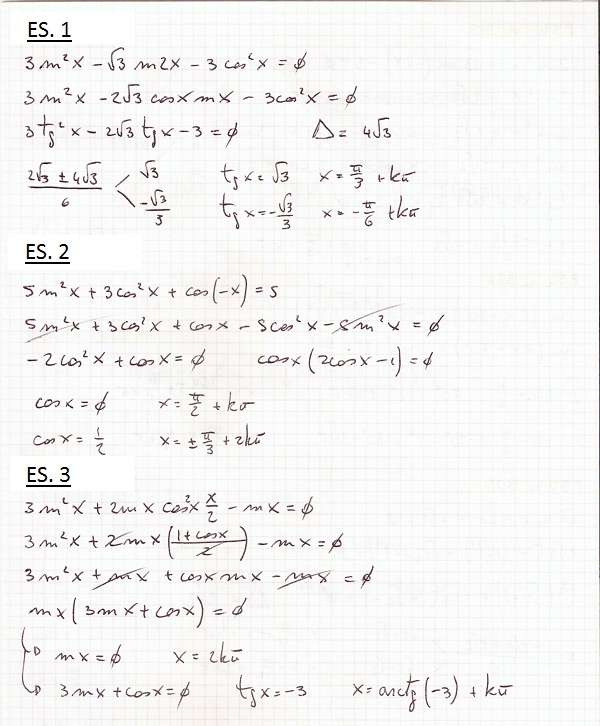 ES. 1
3 sin²x - √3 sin2x - 3 cos²x = ∅
3 sin²x - 2√3 cosx sinx - 3cos²x = ∅
3 tg²x - 2√3 tgx - 3 = ∅ Δ = 4√3
(2√3 ± 4√3)/6 < √3 tgx = √3 x = π/3 + kπ
-√3/3 tgx = -√3/3 x = -π/6 + kπ
ES. 2
5 sin²x + 3cos²x + cos(-x) = 5
5 sin²x + 3cos²x + cosx - 5cos²x - 5 sin²x = ∅
-2cos²x + cosx = ∅ cosx(2cosx - 1) = ∅
cosx = ∅ x = π/2 + kπ
cosx = 1/2 x = ± π/3 + 2kπ
ES. 3
3 sin²x + 2sinx cos²x x/2 - sinx = ∅
3 sin²x + 2sinx((1+cosx)/2) - sinx = ∅
3 sin²x + sinx + cosx sinx - sinx = ∅
sinx(3sinx + cosx) = ∅
sinx = ∅ x = 2kπ
3sinx + cosx = ∅ tgx = -3 x = arctg(-3) + kπ